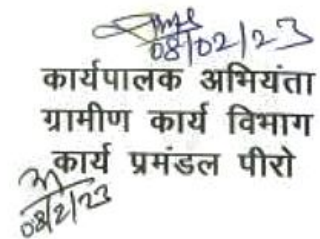 08/02/23
कार्यपालक अभियंता
ग्रामीण कार्य विभाग
कार्य प्रमंडल पीरो
08/2/23